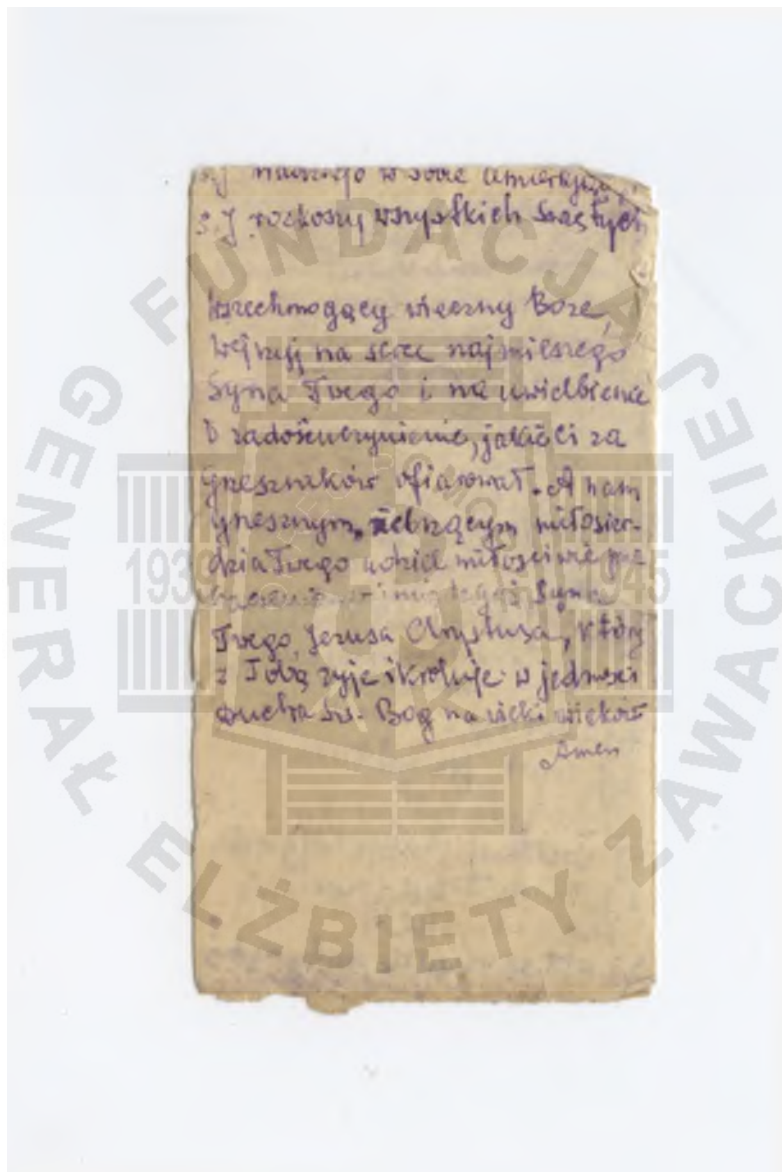 s.J rozkoszy wszystkich Świętych
Wszechmogący wieczny Boże,
wejrzyj na serce najmilszego
Syna Twego i na uwielbienie
i zadośćuczynienie, jakie Ci za
grzeszników ofiarował. A nam
grzesznym, żebrzącym miłosier-
dzia Twego udziel miłościwie
w imię tegoż Syna
Twego Jezusa Chrystusa, który
z Tobą żyje i króluje w jedności
Ducha Św. Bóg na wieki wieków
Amen
FUNDACJA
GENERAŁ ELŻBIETY ZAWACKIEJ
1939 1945